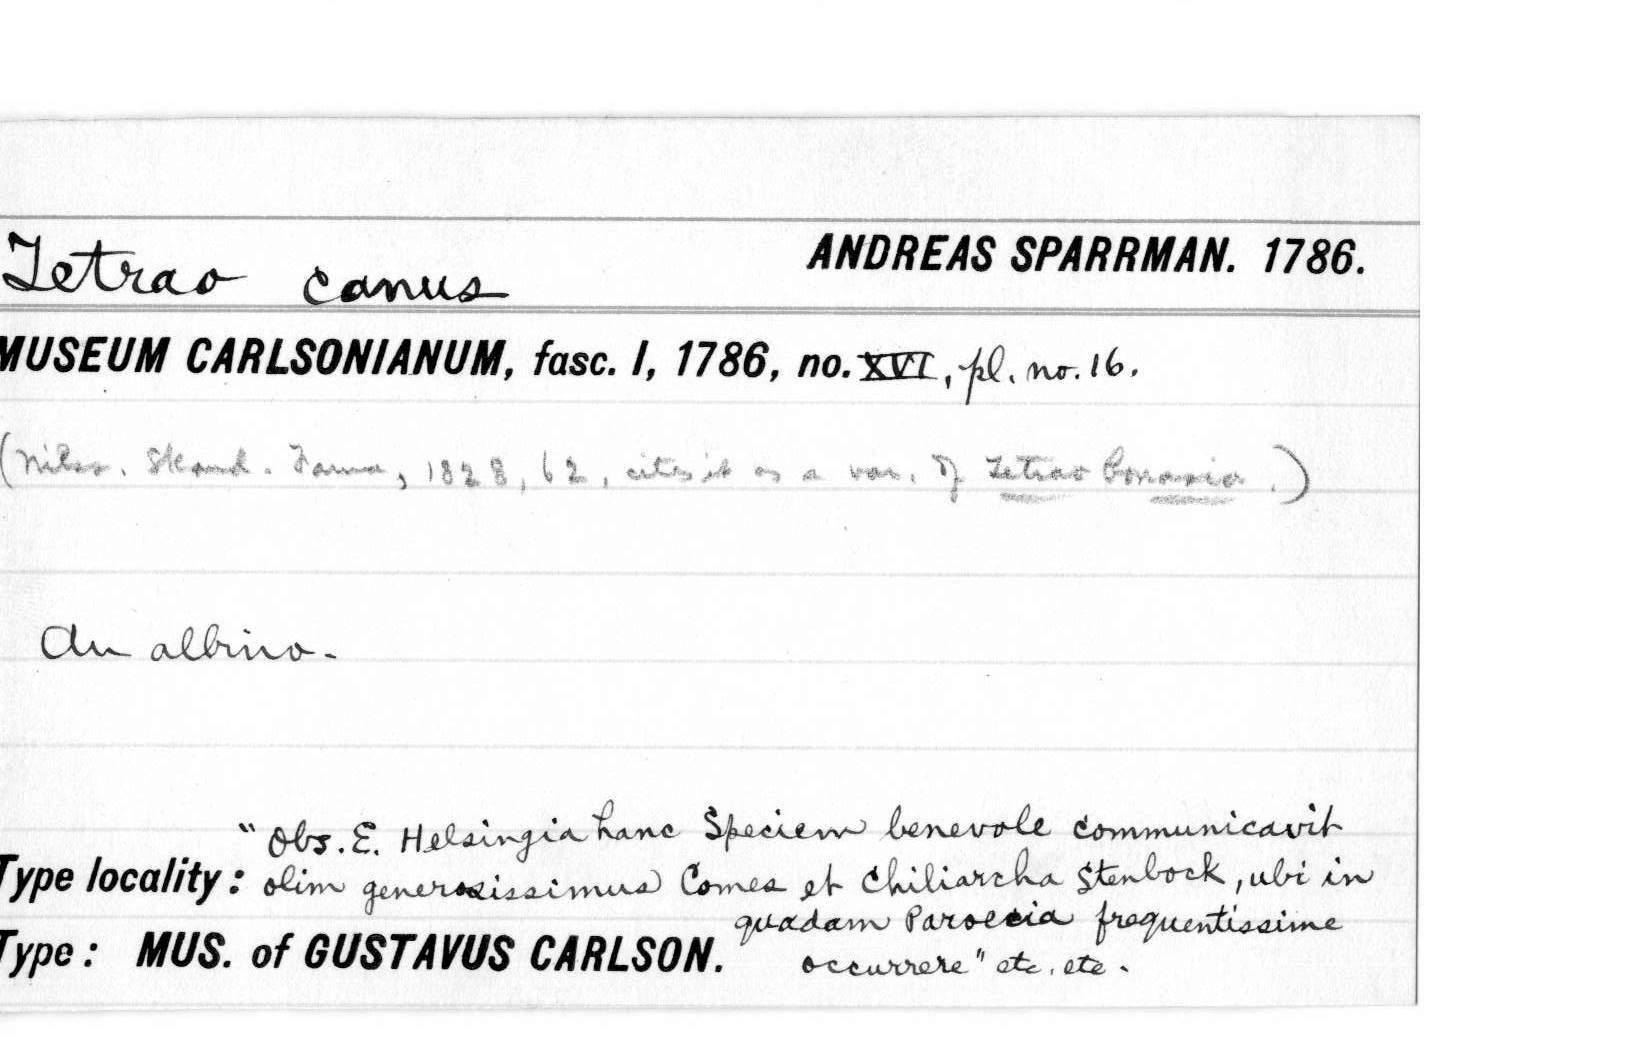 Tetrao canus ANDREAS SPARRMAN. 1786.
MUSEUM CARLSONIANUM, fasc. I, 1786, no. XVI, pl. no. 16.
(Nilss. Skand. Fauna, 1828, 62, cites it as a var. of Tetrao bonasia.)
An albino.
"Obs. E. Helsingia hanc Speciem benevole communicavit
Type locality: olim generosissimus Comes et Chiliarcha Stenbock, ubi in
quadam Paroecia frequentissime
Type: MUS. of GUSTAVUS CARLSON. occurrere" etc. etc.